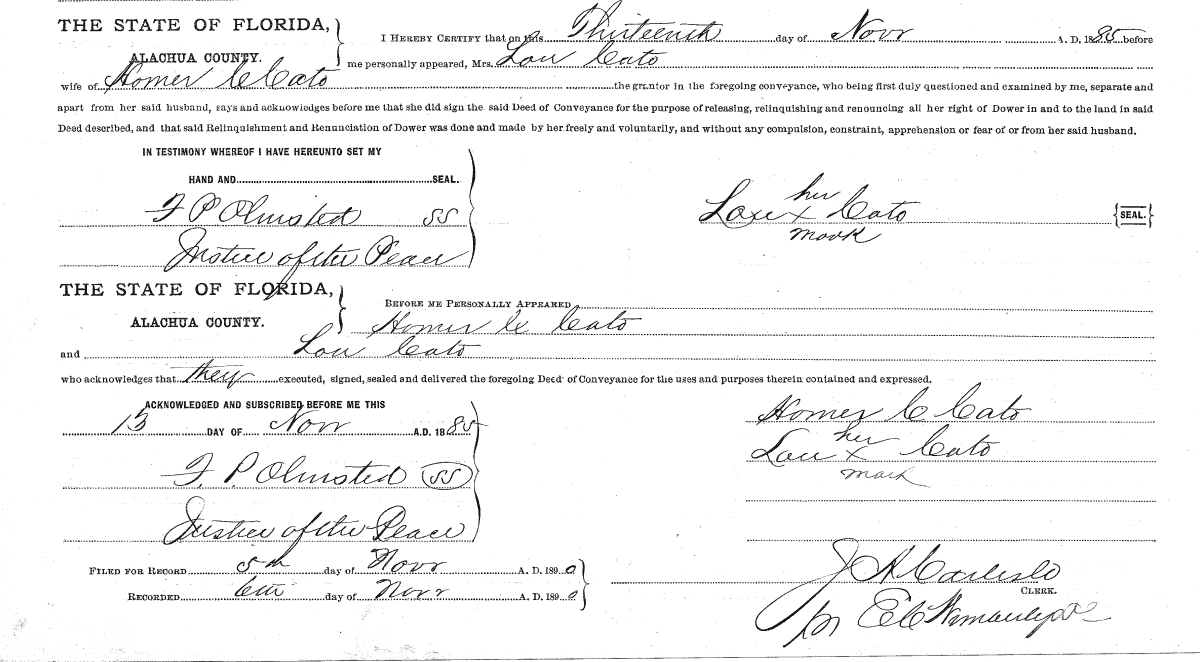 THE STATE OF FLORIDA,
ALACHUA COUNTY.
I HEREBY CERTIFY that on this Thirteenth day of Novr A. D. 1885 before
me personally appeared, Mrs. Lou Cato
wife of Homer C Cato the grantor in the foregoing conveyance, who being first duly questioned and examined by me, separate and
apart from her said husband, says and acknowledges before me that she did sign the said Deed of Conveyance for the purpose of releasing, relinquishing and renouncing all her right of Dower in and to the land in said
Deed described, and that said Relinquishment and Renunciation of Dower was done and made by her freely and voluntarily, and without any compulsion, constraint, apprehension or fear of or from her said husband.
IN TESTIMONY WHEREOF I HAVE HEREUNTO SET MY
HAND AND SEAL.
F P Olmsted SS
Justice of the Peace
her
Lou x Cato {SEAL.}
mark
THE STATE OF FLORIDA,
ALACHUA COUNTY.
BEFORE ME PERSONALLY APPEARED
Homer C Cato
and Lou Cato
who acknowledges that they executed, signed, sealed and delivered the foregoing Deed of Conveyance for the uses and purposes therein contained and expressed.
ACKNOWLEDGED AND SUBSCRIBED BEFORE ME THIS
13 DAY OF Novr A.D. 1885
F. P. Olmsted SS
Justice of the Peace
Homer C Cato
her
Lou x Cato
mark
FILED FOR RECORD 5th day of Novr A. D. 1890
RECORDED 6th day of Novr A. D. 1890
J A Carlisle
CLERK.
pr